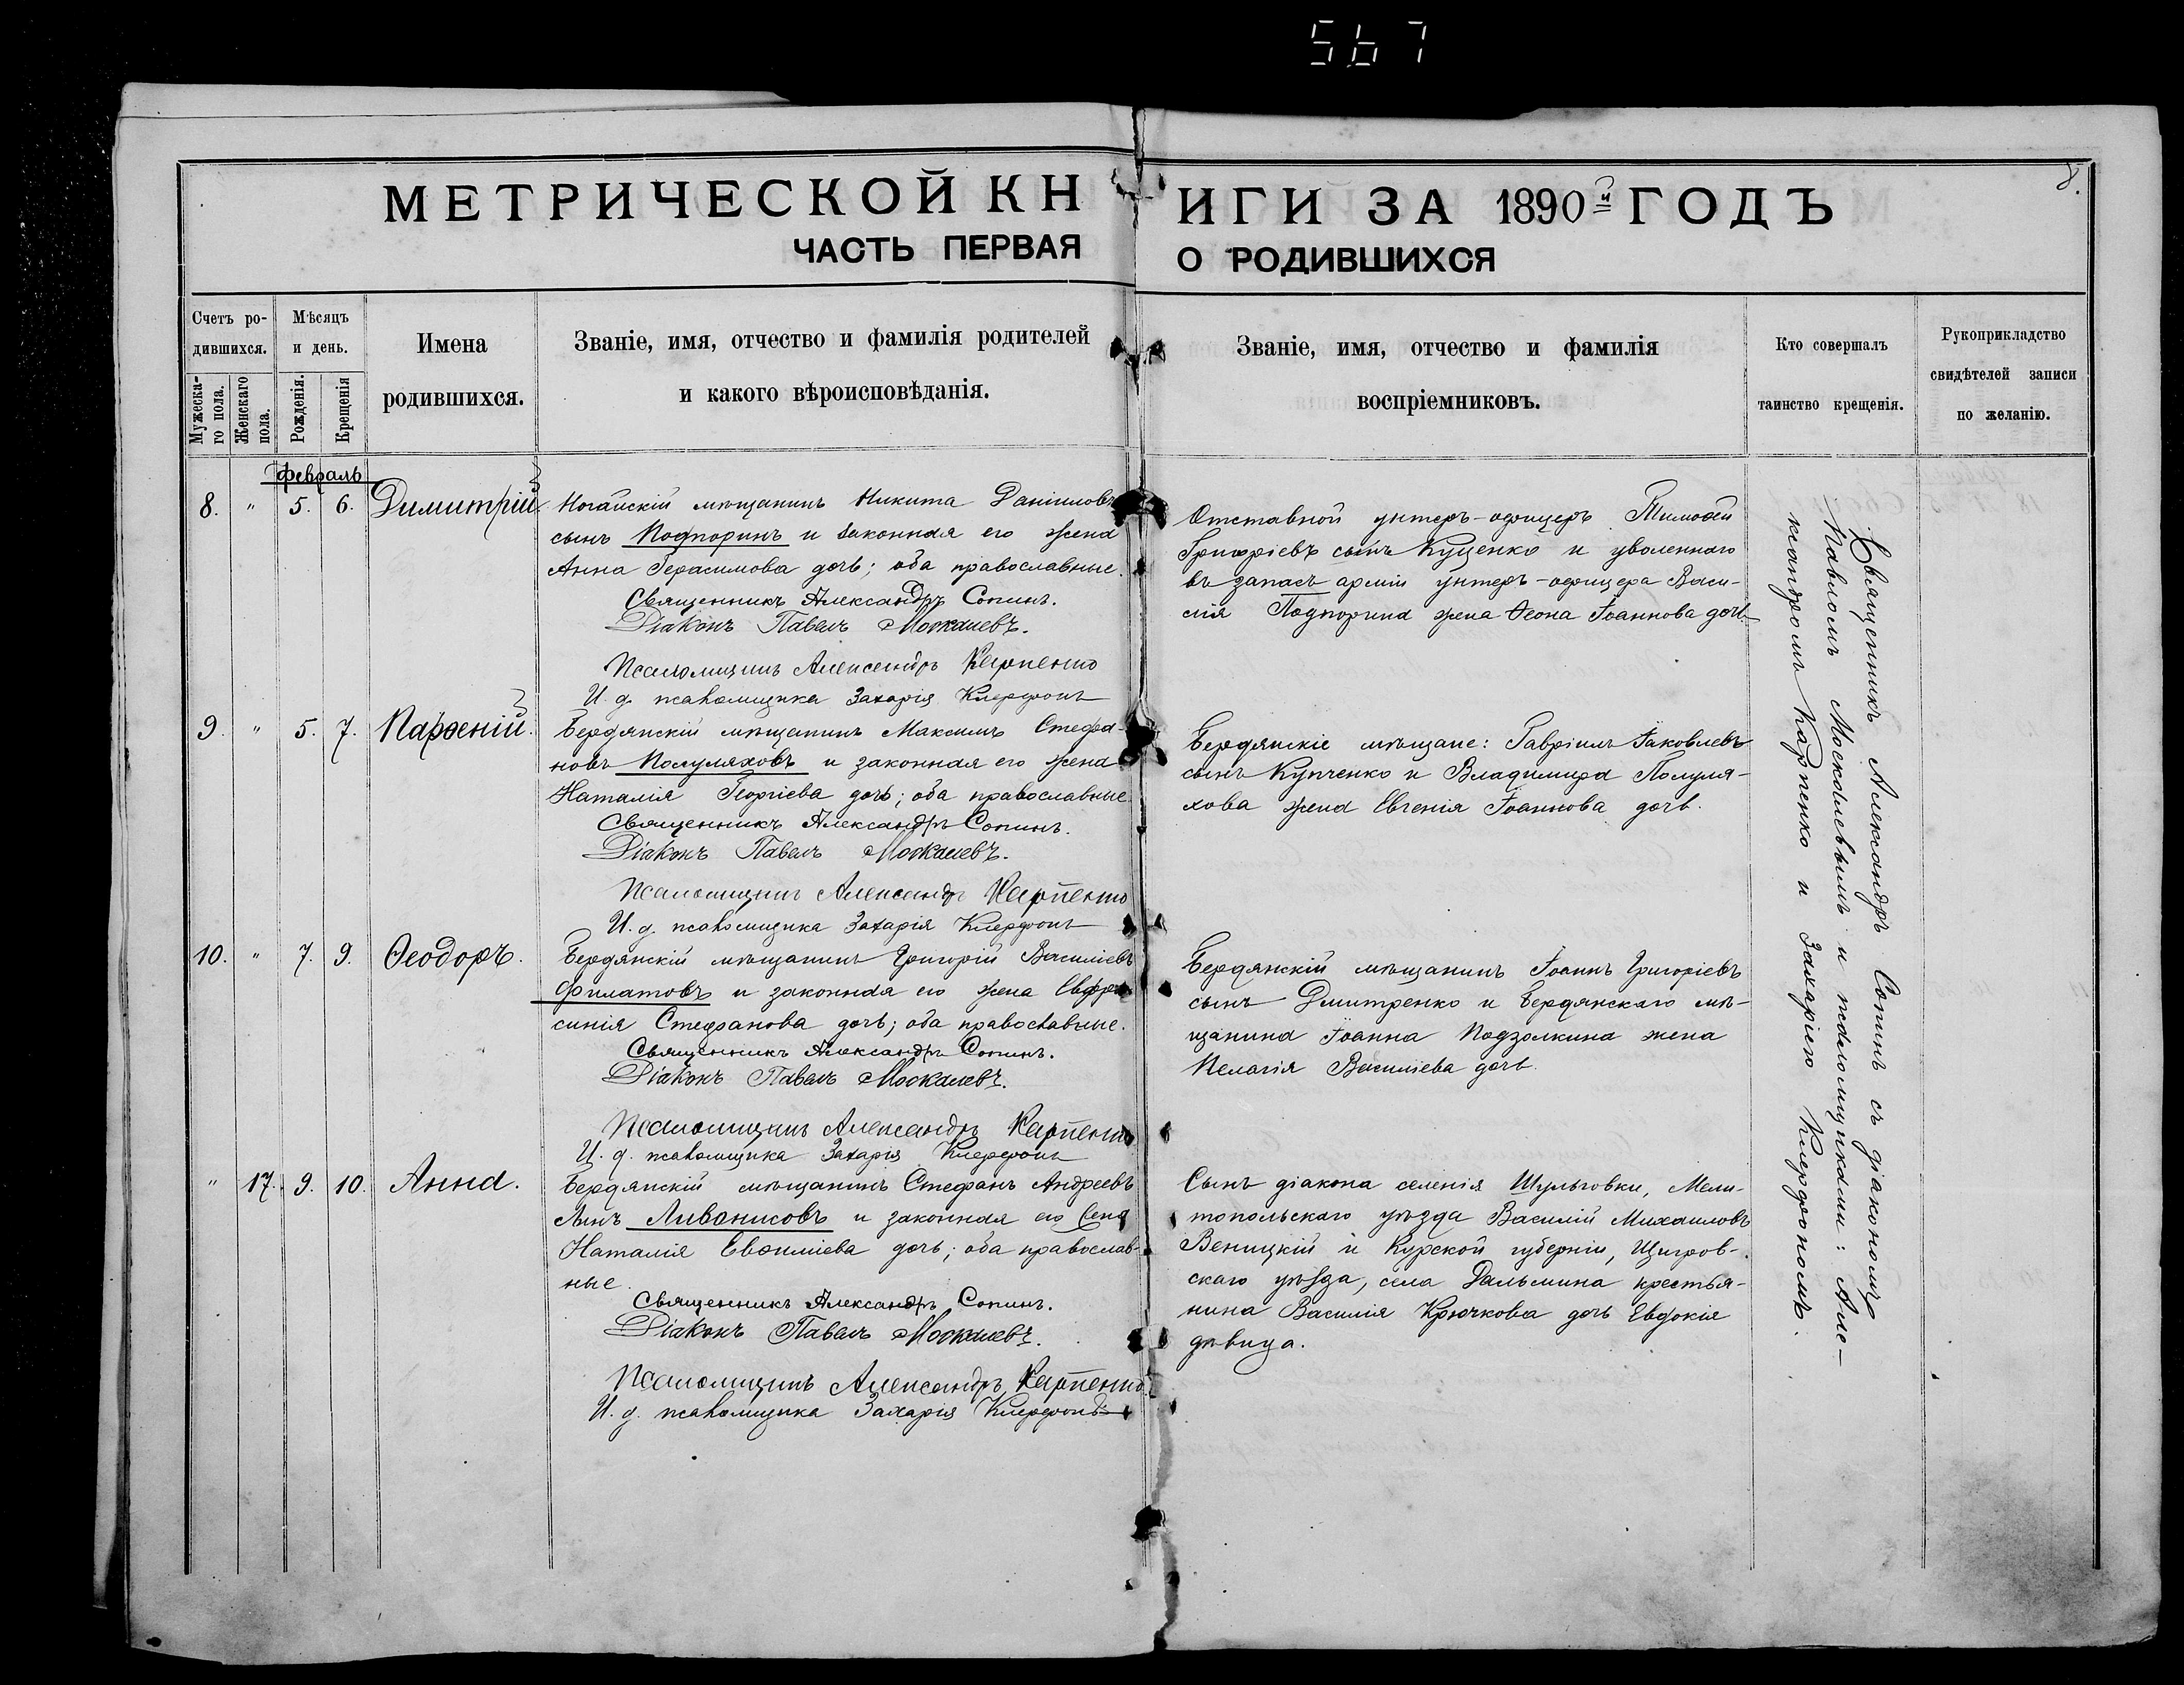 567
8.
МЕТРИЧЕСКОЙ КНИГИ ЗА 1890й ГОДЪ
ЧАСТЬ ПЕРВАЯ О РОДИВШИХСЯ
Счетъ ро-
дившихся.
Мужеска-
го пола.
Женскаго
пола.
Мѣсяцъ
и день.
Рожденія.
Крещенія
Имена
родившихся.
Званіе, имя, отчество и фамилія родителей
и какого вѣроисповѣданія.
Званіе, имя, отчество и фамилія
воспріемниковъ.
Кто совершалъ
таинство крещенія.
Рукоприкладство
свидѣтелей записи
по желанію.
Февраль
8. " 5. 6. Димитрій
Ногайскій мѣщанинъ Никита Даніиловъ
сынъ Подпоринъ и законная его жена
Анна Герасимова дочь; оба православные.
Священникъ Александръ Сопинъ.
Діаконъ Павелъ Москалевъ.
Псаломщикъ Александръ Карпенко
И. д. псаломщика Захарія Клерфонъ
Отставной унтеръ-офицеръ Тимоѳей
Григоріевъ сынъ Куценко и уволеннаго
въ запасъ арміи унтеръ-офицера Васи-
лія Подпорина жена Ѳеона Іоаннова дочь
9. " 5. 7. Парѳеній.
Бердянскій мѣщанинъ Максимъ Стефа-
новъ Полуляховъ и законная его жена
Наталія Георгіева дочь; оба православные
Священникъ Александръ Сопинъ.
Діаконъ Павелъ Москалевъ.
Псаломщикъ Александръ Карпенко
И. д. псаломщика Захарія Клерфонъ
Бердянскіе мѣщане: Гавріилъ Іаковлевъ
сынъ Купченко и Владимира Полуля-
хова жена Евгенія Іоаннова дочь.
10. " 7. 9. Ѳеодоръ.
Бердянскій мѣщанинъ Григорій Василіевъ
Филатовъ и законная его жена Евфро
синія Стефанова дочь; оба православные.
Священникъ Александръ Сопинъ.
Діаконъ Павелъ Москалевъ.
Псаломщикъ Александръ Карпенко
И. д. псаломщика Захарія Клерфонъ
Бердянскій мѣщанинъ Іоаннъ Григоріевъ
сынъ Дмитренко и Бердянскаго мѣ-
щанина Іоанна Подзолкина жена
Пелагія Василіева дочь.
" 17. 9. 10. Анна.
Бердянскій мѣщанинъ Стефанъ Андреевъ
сынъ Ливанисовъ и законная его жена
Наталія Евѳиміева дочь; оба православ-
ные.
Священникъ Александръ Сопинъ.
Діаконъ Павелъ Москалевъ.
Псаломщикъ Александръ Карпенко
И. д. псаломщика Захарія Клерфонъ
Сынъ діакона селенія Шульговки, Мели-
топольскаго уѣзда Василій Михаиловъ
Веницкій и Курской губерніи, Щигров-
скаго уѣзда, села Дальмина крестья-
нина Василія Крючкова дочь Евдокія
дѣвица.
Священникъ Александръ Сопинъ съ діакономъ
Павломъ Москалевымъ и псаломщиками: Але-
ксандромъ Карпенко и Захаріею Клерфономъ.